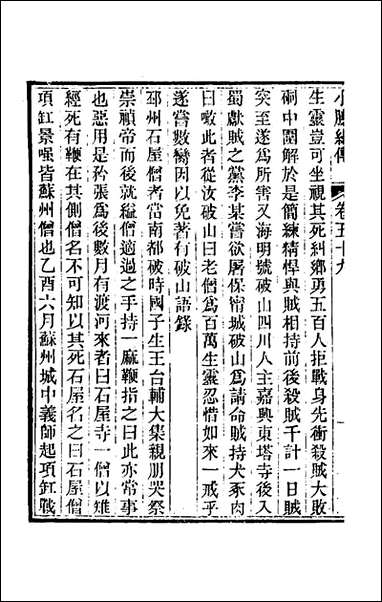 小腆紀傳 卷五十九
生靈豈可坐視其死糾鄉勇五百人拒戰身先衝殺賊大敗
砀中圍解於是簡練精悍與賊相持前後殺賊千計一日賊
突至遂爲所害又海明號破山四川人主嘉興東塔寺後入
蜀獻賊之黨李某嘗欲屠保甯城破山爲請命賊持犬豕肉
曰噉此者從汝破山曰老僧爲百萬生靈忍惜如來一戒乎
遂嘗數臠因以免著有破山語錄
邳州石屋僧者當南都破時國子生王台輔大集親朋哭祭
崇禎帝而後就縊僧適過之手持一麻鞭指之曰此亦常事
也惡用是矜張爲後數月有渡河來者曰石屋寺一僧以雉
經死有鞭在其側僧名不可知以其死石屋名之曰石屋僧
項缸景嘆皆蘇州僧也乙酉六月蘇州城中義師起項缸戰